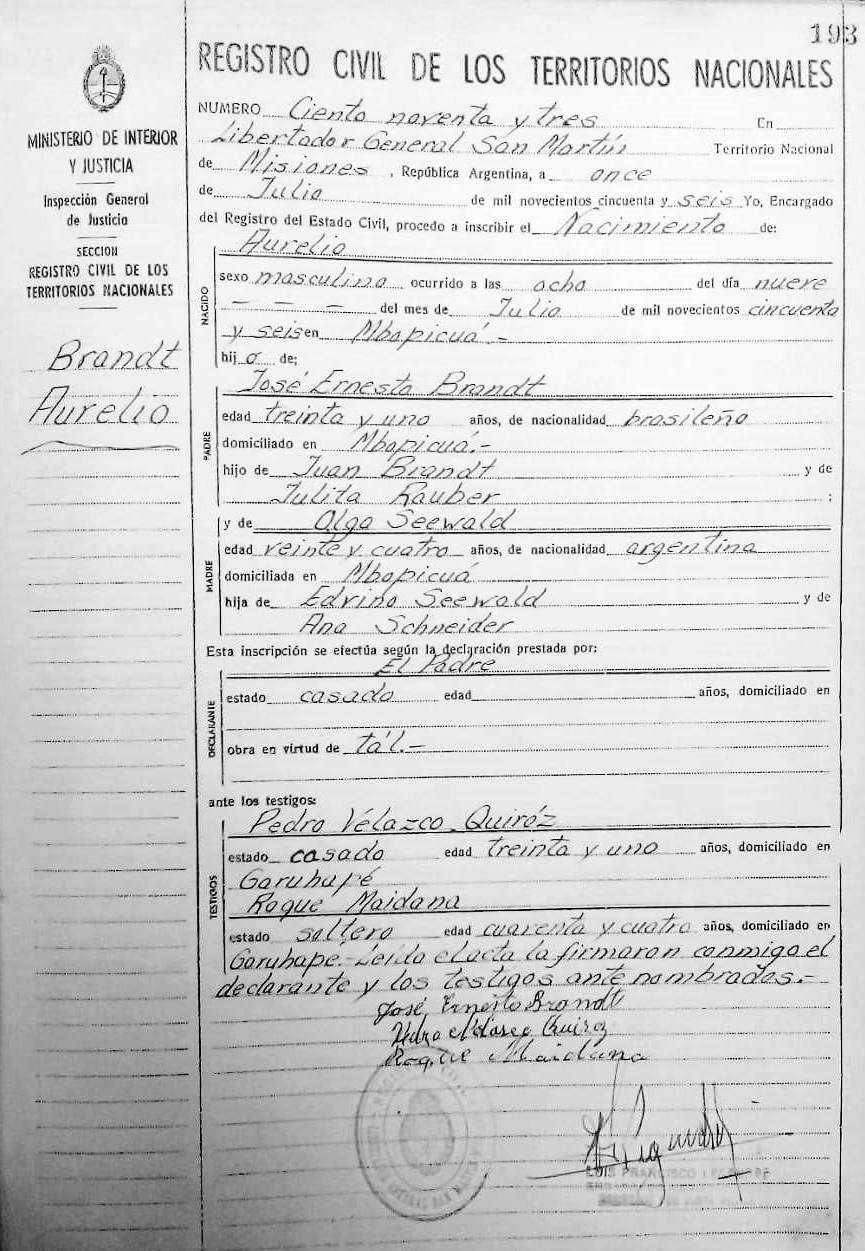 193
REGISTRO CIVIL DE LOS TERRITORIOS NACIONALES
MINISTERIO DE INTERIOR
Y JUSTICIA
Inspección General
de Justicia
SECCION
REGISTRO CIVIL DE LOS
TERRITORIOS NACIONALES
Brandt
Aurelio
NUMERO Ciento noventa y tres En
Libertador General San Martín Territorio Nacional
de Misiones, República Argentina, a once
de Julio de mil novecientos cincuenta y seis Yo, Encargado
del Registro del Estado Civil, procedo a inscribir el Nacimiento de:
Aurelio
NACIDO
sexo masculino ocurrido a las ocho del día nueve
— — — del mes de Julio de mil novecientos cincuenta
y seis en Mbopicuá.-
hijo de;
José Ernesto Brandt
PADRE
edad treinta y uno años, de nacionalidad brasileño
domiciliado en Mbopicuá.-
hijo de Juan Brandt y de
Julita Rauber ;
y de Olga Seewald
MADRE
edad veinte y cuatro años, de nacionalidad argentina
domiciliada en Mbopicuá
hija de Edvino Seewald y de
Ana Schneider
Esta inscripción se efectúa según la declaración prestada por:
El Padre
DECLARANTE
estado casado edad años, domiciliado en
obra en virtud de tál.-
ante los testigos:
Pedro Velazco Quiróz
TESTIGOS
estado casado edad treinta y uno años, domiciliado en
Garuhapé
Roque Maidana
estado soltero edad cuarenta y cuatro años, domiciliado en
Garuhape.- Leída el acta la firmaron conmigo el
declarante y los testigos ante nombrados.-
José Ernesto Brandt
Pedro Velasco Quiroz
Roque Maidana
LUIS FRANCISCO